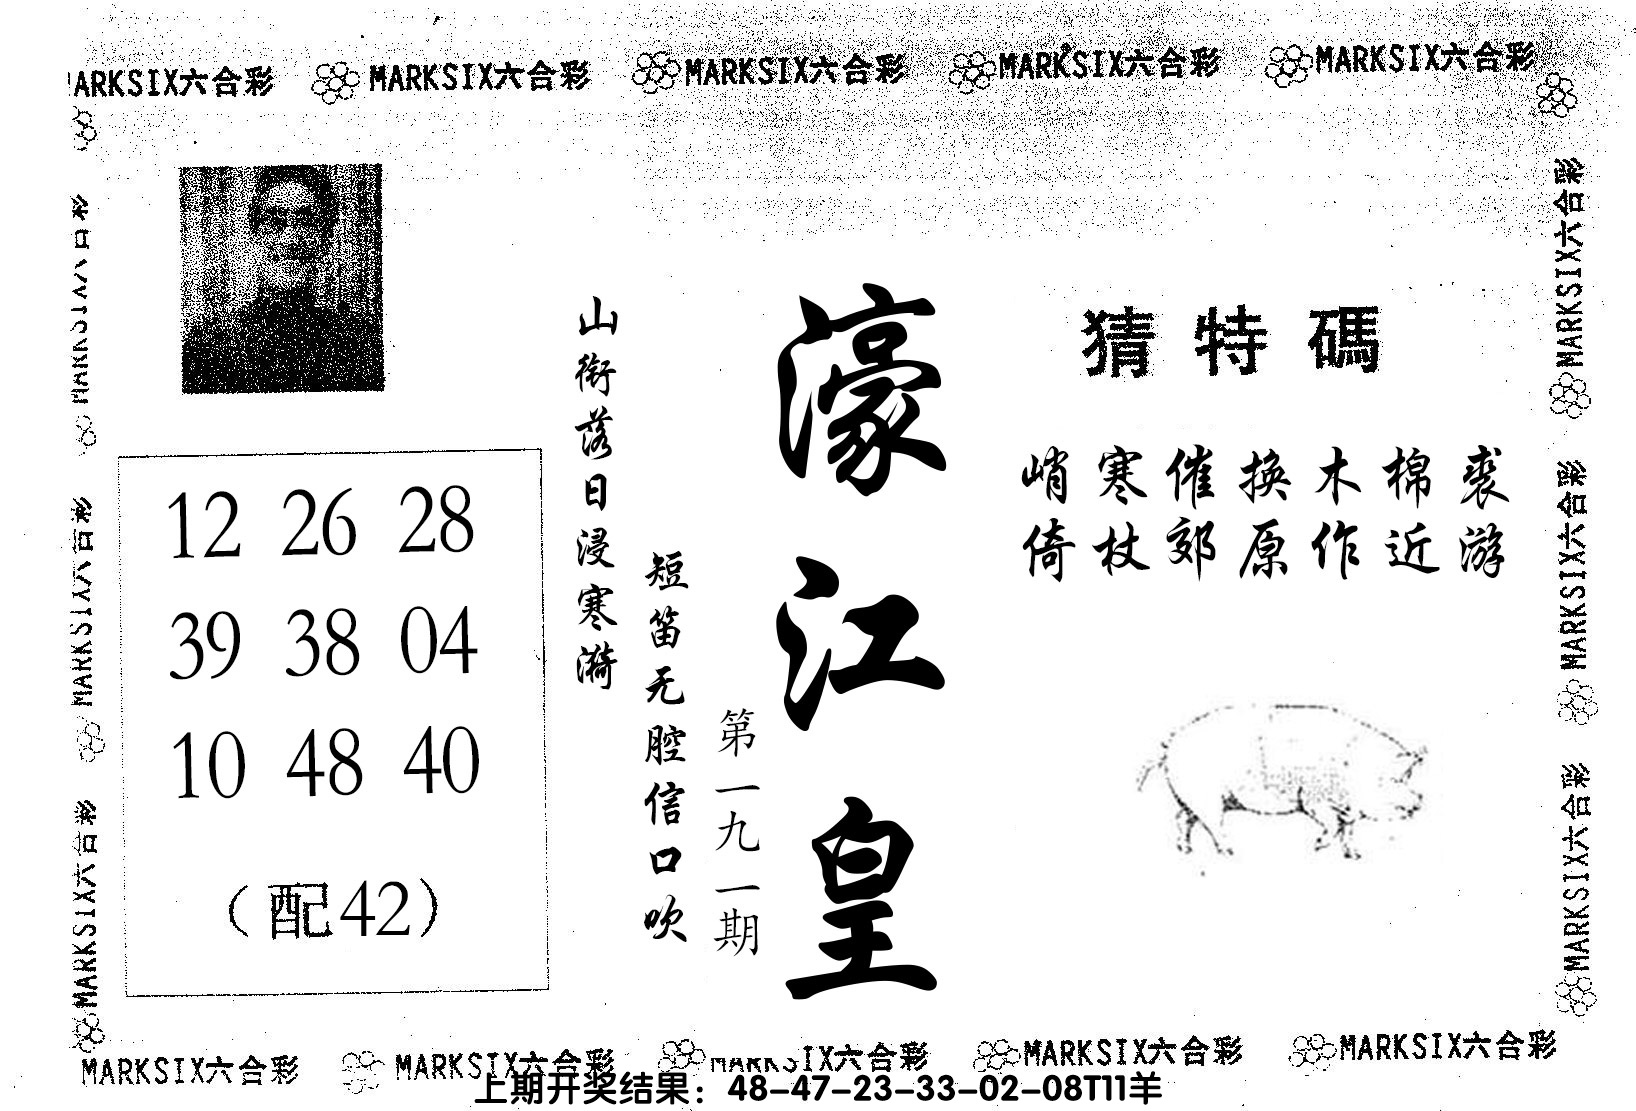 MARKSIX六合彩 MARKSIX六合彩 MARKSIX六合彩 MARKSIX六合彩 MARKSIX六合彩
猜特碼
峭寒催换木棉裘
倚杖郊原作近游
濠江皇
第一九一期
山衔落日浸寒漪
短笛无腔信口吹
12 26 28
39 38 04
10 48 40
（配42）
MARKSIX六合彩
MARKSIX六合彩
MARKSIX六合彩
MARKSIX六合彩
MARKSIX六合彩
MARKSIX六合彩
MARKSIX六合彩 MARKSIX六合彩 MARKSIX六合彩 MARKSIX六合彩 MARKSIX六合彩
上期开奖结果：48-47-23-33-02-08T11羊